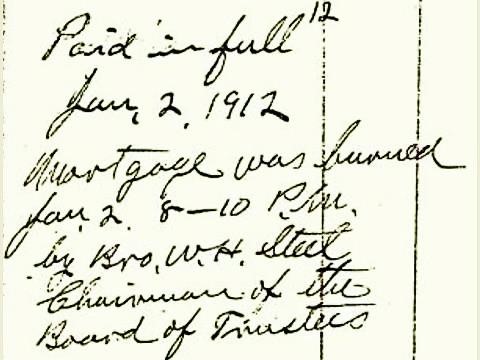 Paid in full 12
Jan, 2, 1912
Mortgage was burned
Jan, 2. 8-10 P.M.
by Bro. W. H. Steel
Chairman of the
Board of Trustees